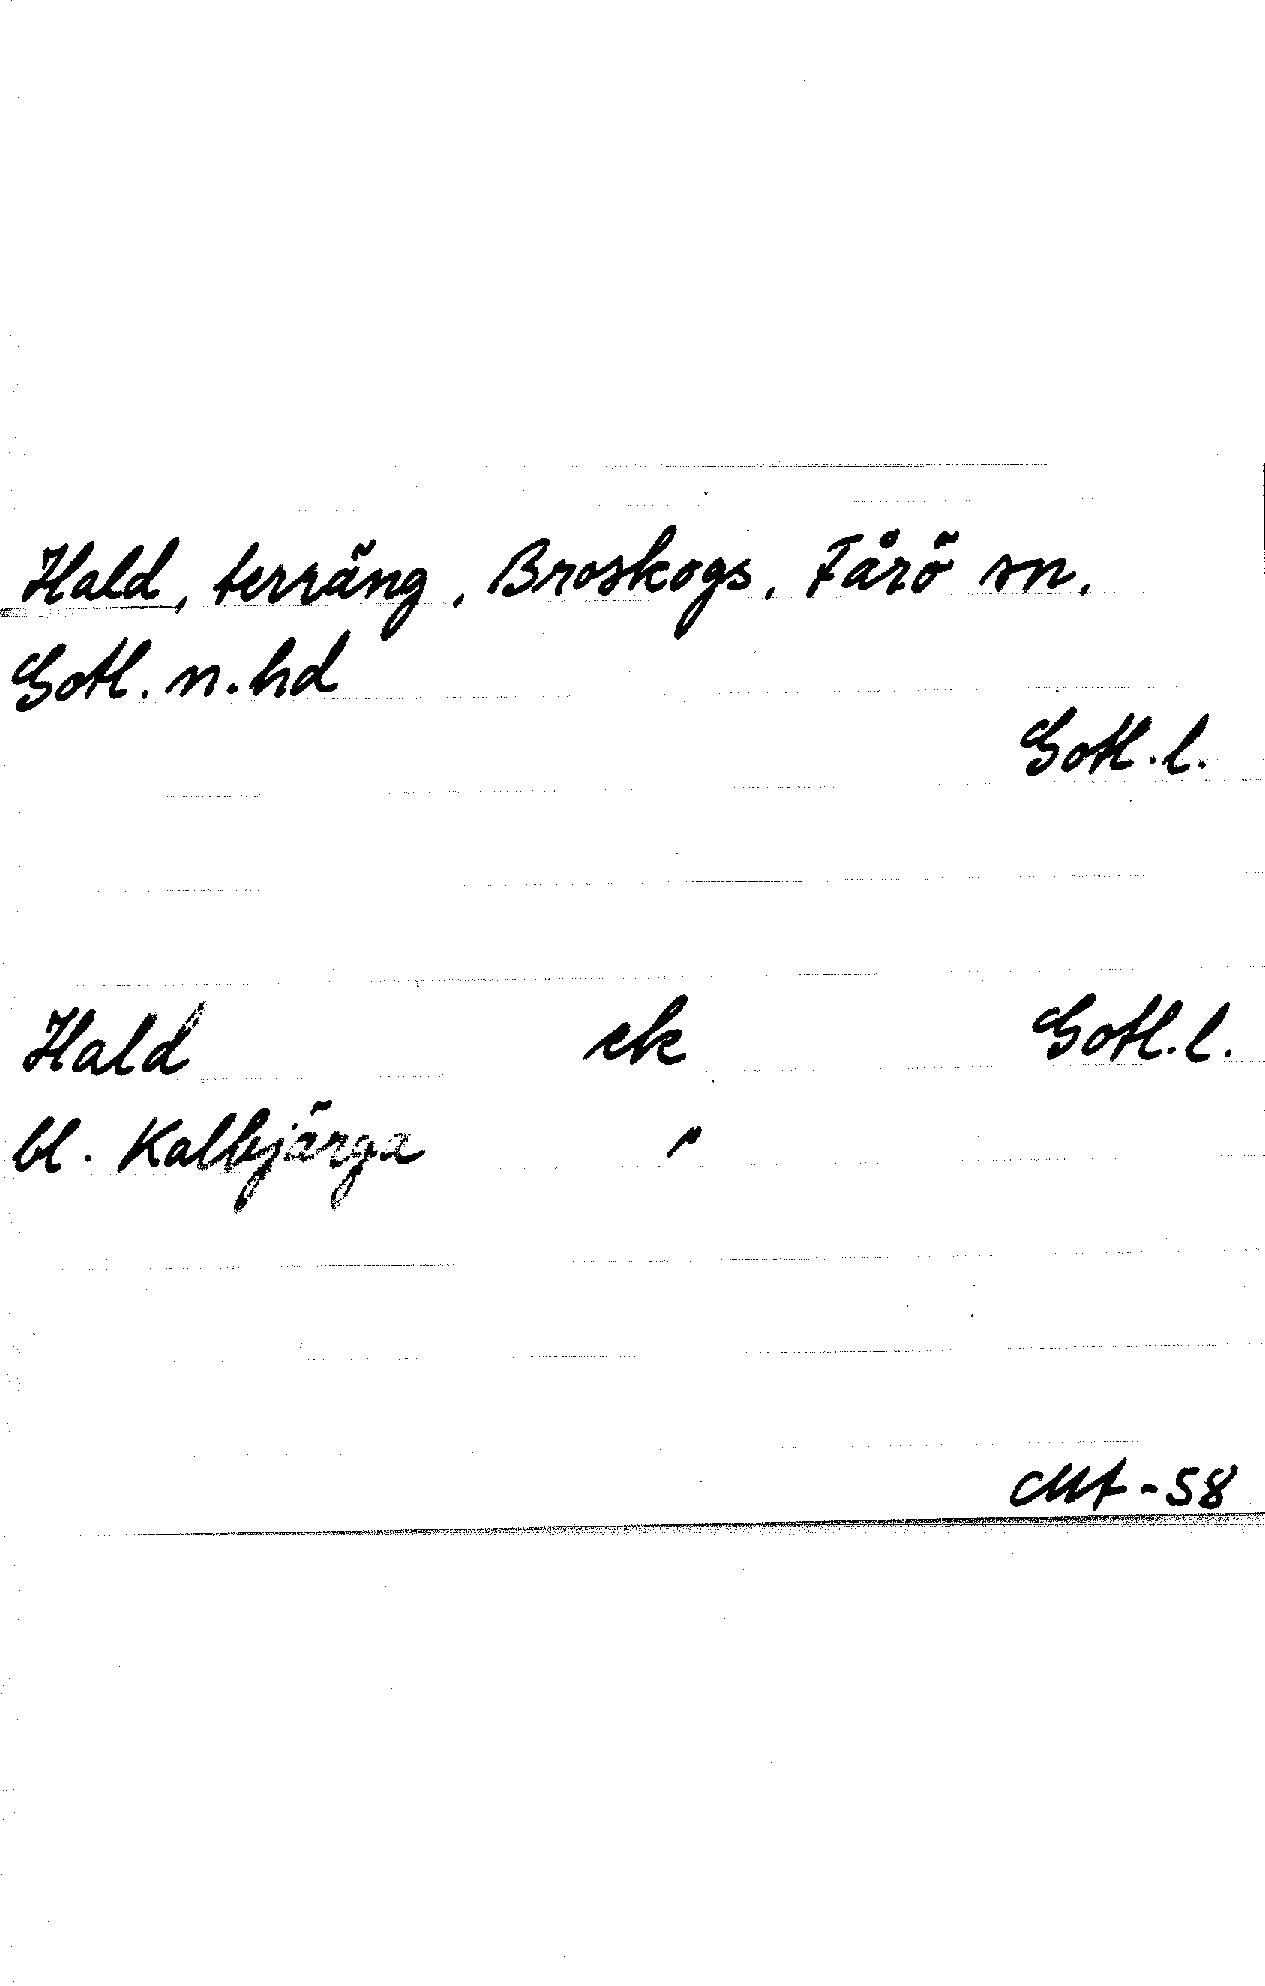 Hald, terräng, Broskogs, Fårö sn,
Gotl. n. hd
Gotl. l.
Hald ek Gotl. l.
bl. Kalbjärga "
-58